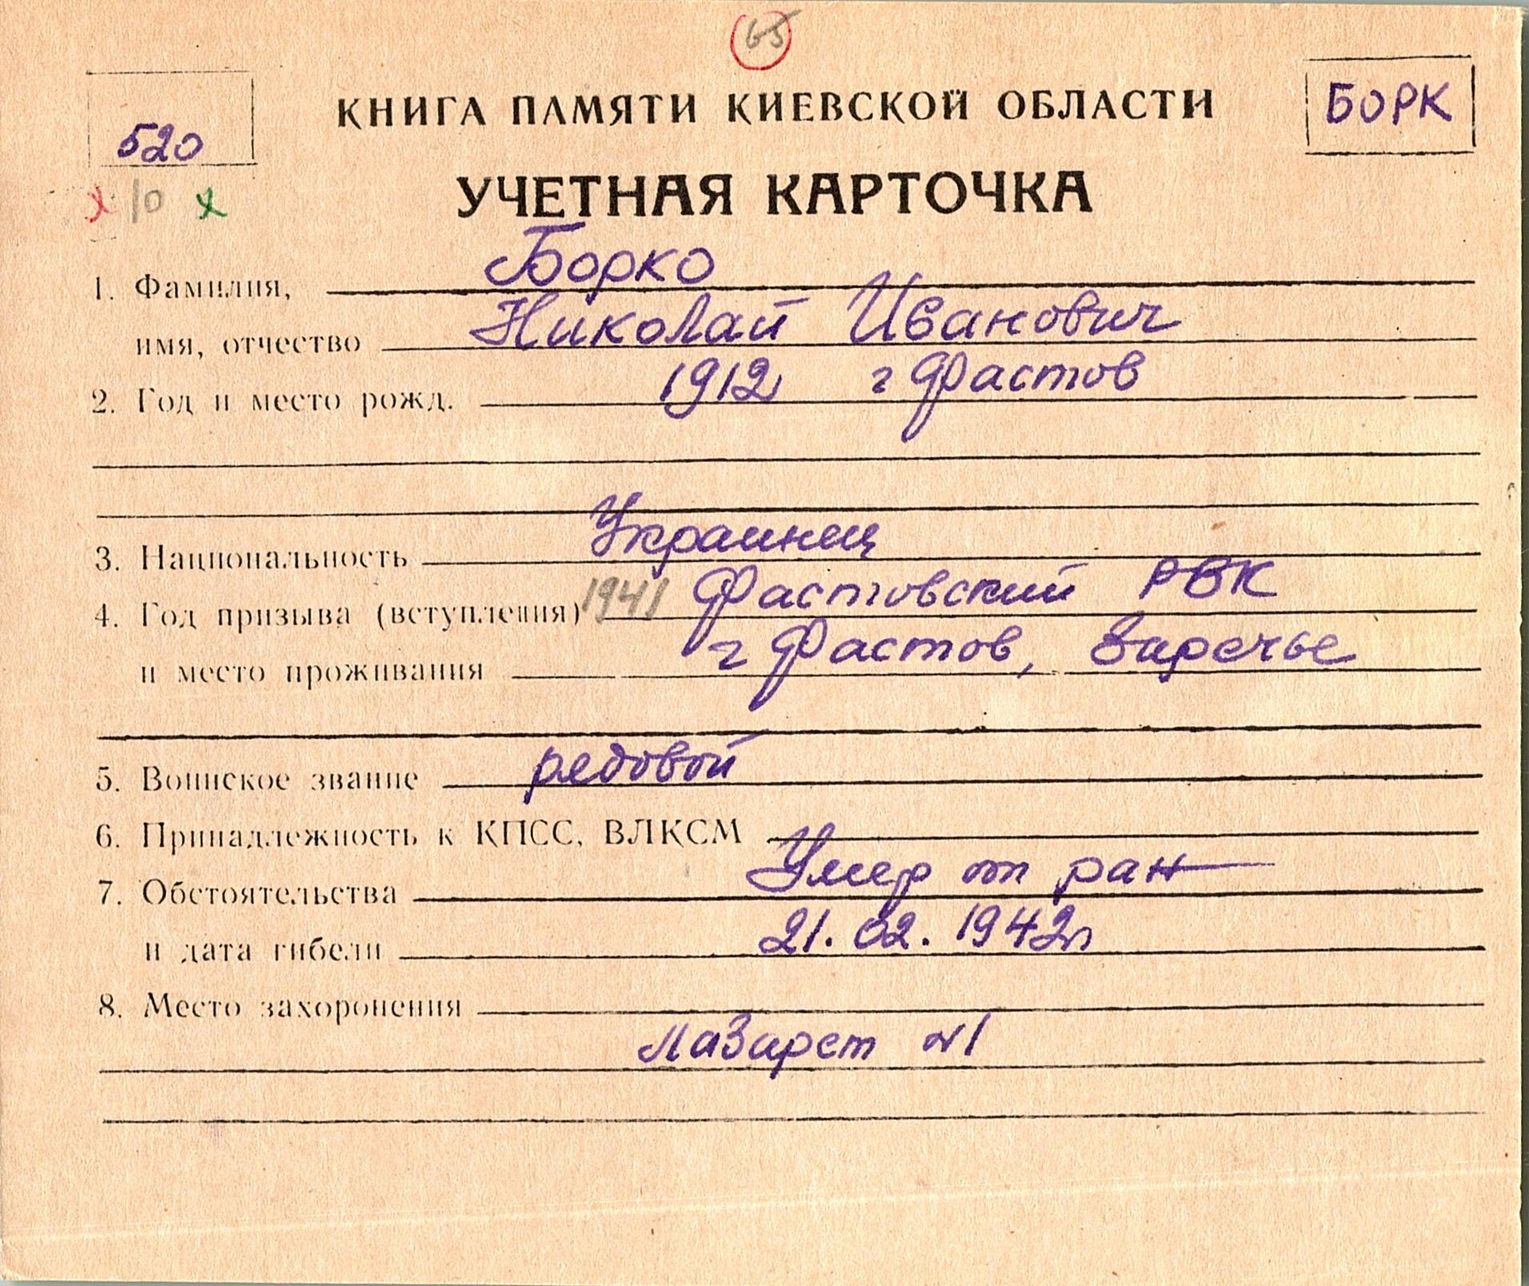 65
520
КНИГА ПАМЯТИ КИЕВСКОЙ ОБЛАСТИ
БОРК
х 10 х
УЧЕТНАЯ КАРТОЧКА
1. Фамилия, Борко
имя, отчество Николай Иванович
2. Год и место рожд. 1912 г Фастов
3. Национальность Украинец
4. Год призыва (вступления) 1941 Фастовский РВК
и место проживания г Фастов, Заречье
5. Воинское звание рядовой
6. Принадлежность к КПСС, ВЛКСМ
7. Обстоятельства Умер от ран
и дата гибели 21.02.1942г
8. Место захоронения
Лазарет №1